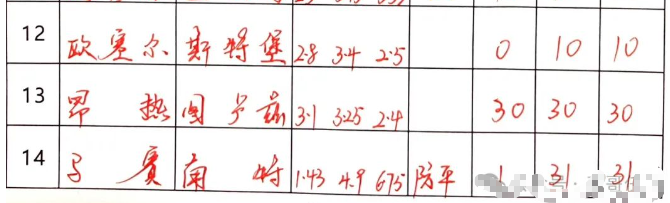 12 欧塞尔 斯特堡 2.8 3.4 2.5 0 10 10
13 昂热 图卢兹 3.1 3.25 2.4 30 30 30
14 马赛 南特 1.43 4.9 6.75 防平 1 31 31